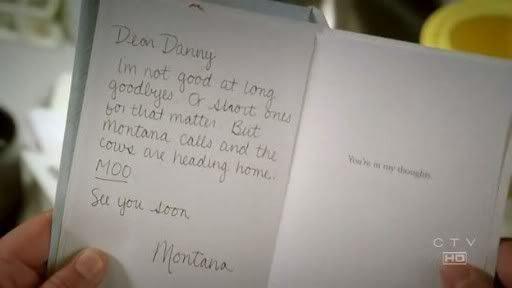 Dear Danny
Im not good at long
goodbyes Or short ones
for that matter. But
montana calls and the
cows are heading home.
MOO
See you soon
Montana
You're in my thoughts.
CTV
HD